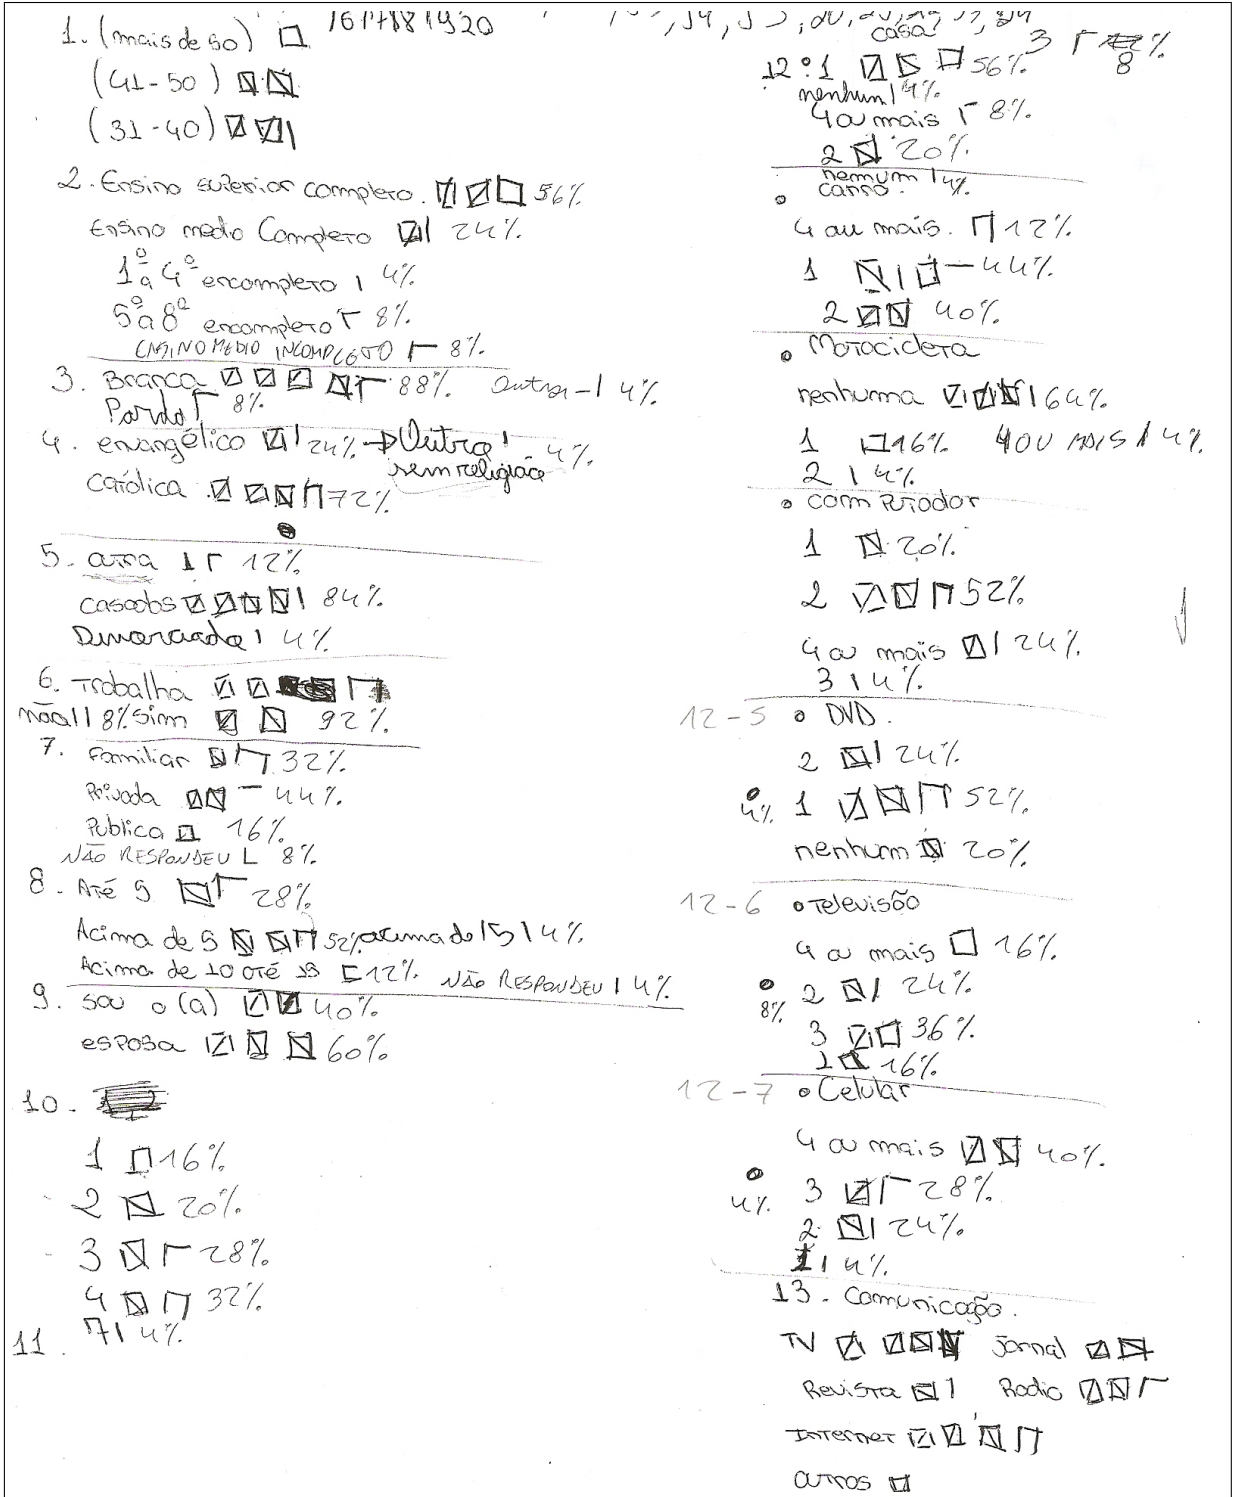 1. (mais de 50) 1617181920
(41-50)
(31-40)
2. Ensino superior completo. 56%
Ensino medio Completo 24%
1ª a 4ª encompleto 4%
5ª a 8ª encompleto 8%
ENSINO MEDIO INCOMPLETO 8%.
3. Branca 88% outra 4%
Parda 8%
4. envangélico 24% → Outra 4%
sem religião
católica 72%
5. outra 12%
casados 84%
Divorciada 4%
6. Trabalha
não 8% sim 92%
7. Familiar 32%
Privada 44%
Publica 16%
NÃO RESPONDEU 8%
8. Até 5 28%
Acima de 5 52% acima de 15 4%
Acima de 10 até 15 12% NÃO RESPONDEU 4%
9. sou o (a) 40%
esposa 60%
10.
1 16%
2 20%
3 28%
4 32%
7 4%
11.
casa 3 8%
12 • 1 56%
nenhum 4%
4 ou mais 8%
2 20%
nenhum 4%
• carro.
4 ou mais. 12%
1 44%
2 40%
• Motocicleta
nenhuma 64%
1 16% 4 OU MAIS 4%
2 4%
• computador
1 20%
2 52%
4 ou mais 24%
3 4%
12-5 • DVD.
2 24%
4% 1 52%
nenhum 20%
12-6 • Televisão
4 ou mais 16%
8% 2 24%
3 36%
1 16%
12-7 • Celular
4 ou mais 40%
4% 3 28%
2 24%
1 4%
13. Comunicação.
TV Jornal
Revista Radio
Internet
outros